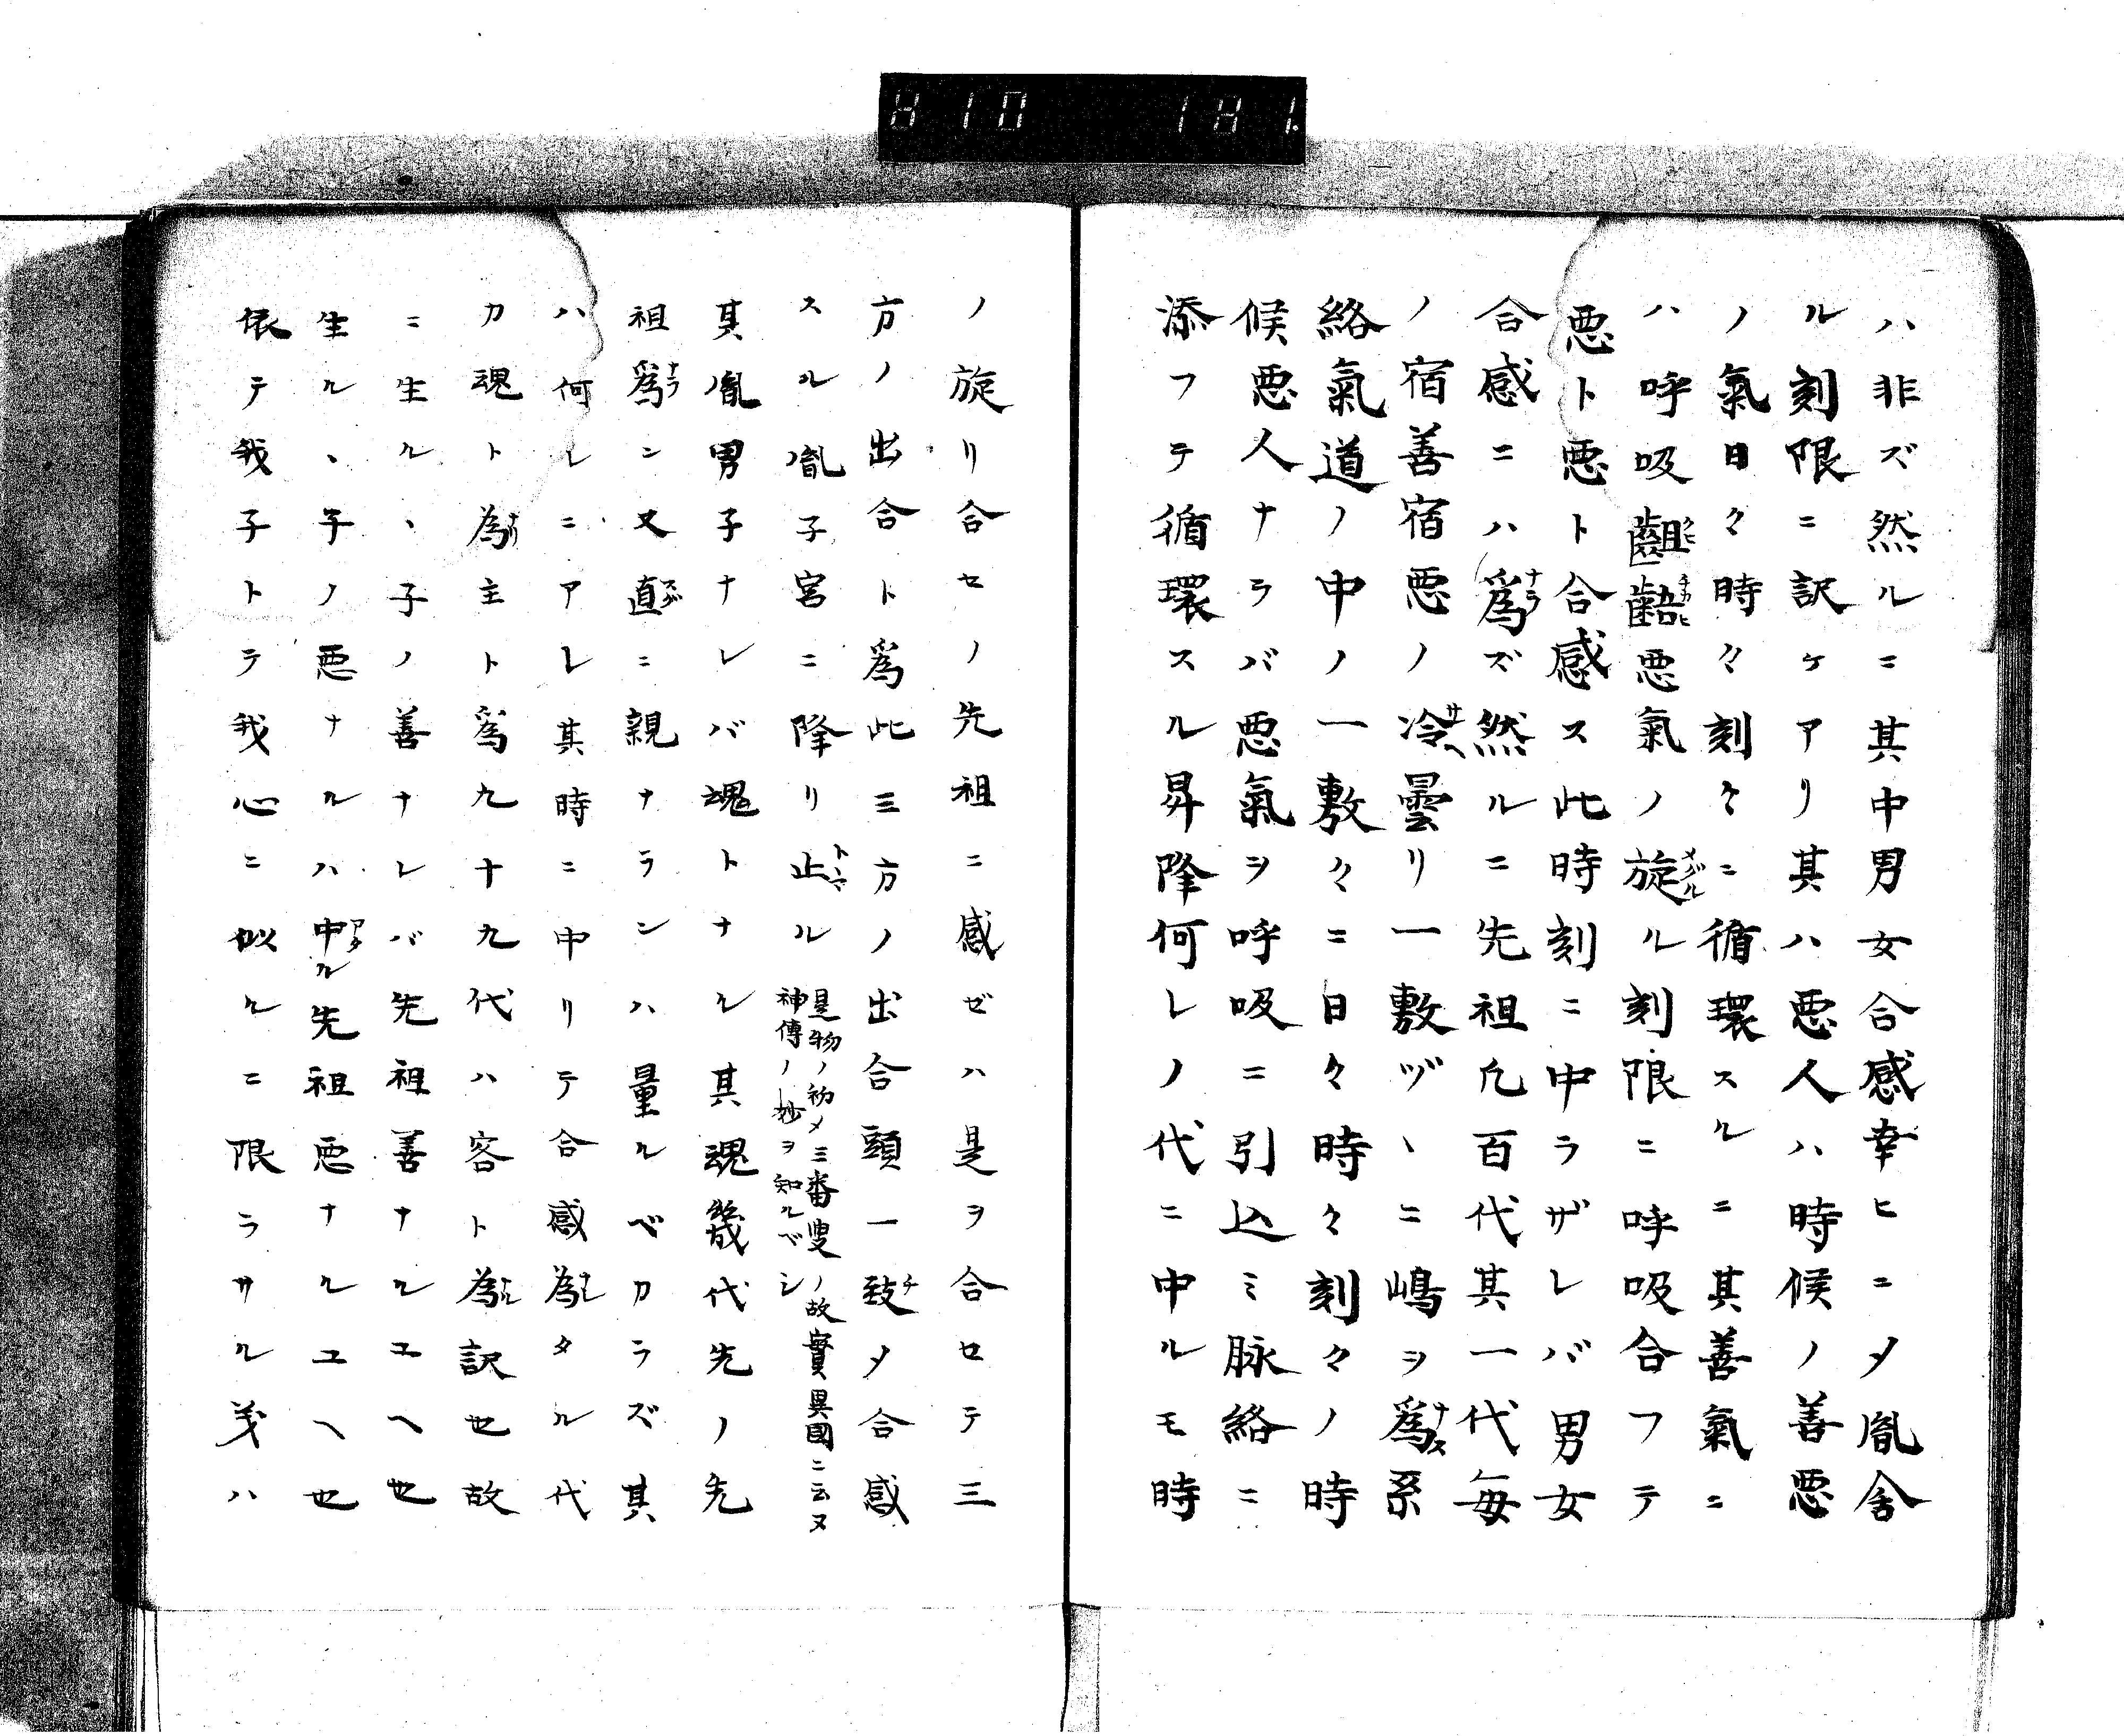 810 181.
ハ非ズ然ルニ其中男女合感幸ヒニ〆胤舎
ル刻限ニ訳ケアリ其ハ悪人ハ時候ノ善悪
ノ氣日々時々刻々ニ循環スルニ其善氣ニ
ハ呼吸齟齬悪氣ノ旋ル刻限ニ呼吸合フテ
悪ト悪ト合感ス此時刻ニ中ラザレバ男女
合感ニハ爲ズ然ルニ先祖凡百代其一代毎
ノ宿善宿悪ノ冷曇リ一敷ヅヽニ嶋ヲ爲系
絡氣道ノ中ノ一敷々ニ日々時々刻々ノ時
候悪人ナラバ悪氣ヲ呼吸ニ引込ミ脉絡ニ
添フテ循環スル昇降何レノ代ニ中ルモ時
ノ旋リ合セノ先祖ニ感ゼハ是ヲ合セテ三
方ノ出合ト爲此三方ノ出合頭一致〆合感
スル胤子宮ニ降リ止ル 是物ノ初メ三番叟ノ故實異國ニ云ヌ
神傳ノ妙ヲ知ルベシ
其胤男子ナレバ魂トナル其魂幾代先ノ先
祖爲ン又直ニ親ナランハ量ルベカラズ其
ハ何レニアレ其時ニ中リテ合感為タル代
カ魂ト為主ト爲九十九代ハ客ト為訳也故
ニ生ルヽ子ノ善ナレバ先祖善ナルユヘ也
生ルヽ子ノ悪ナルハ中ル先祖悪ナルユヘ也
依テ我子トテ我心ニ似ルニ限ラサル義ハ